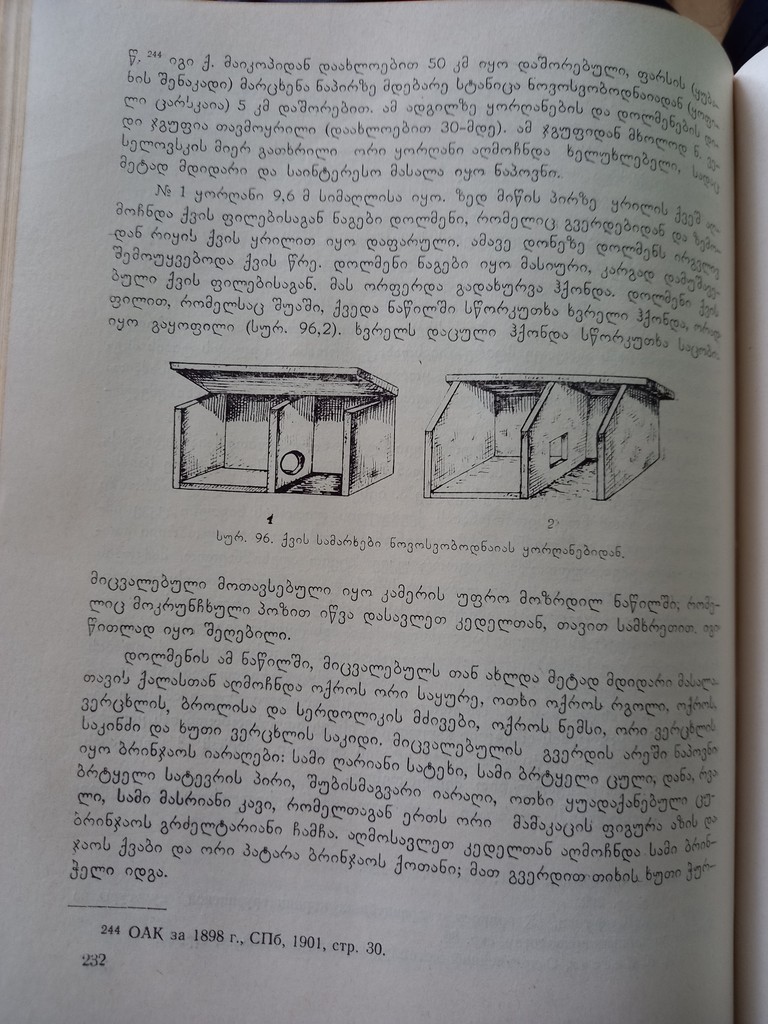 წ. ²⁴⁴ იგი ქ. მაიკოპიდან დაახლოებით 50 კმ იყო დაშორებული, ფარსის (ყუბა-
ნის შენაკადი) მარცხენა ნაპირზე მდებარე სტანიცა ნოვოსვობოდნაიადან (ყოფი-
ლი ცარსკაია) 5 კმ დაშორებით. ამ ადგილზე ყორღანების და დოლმენების დი-
დი ჯგუფია თავმოყრილი (დაახლოებით 30-მდე). ამ ჯგუფიდან მხოლოდ ნ. ვე-
სელოვსკის მიერ გათხრილი ორი ყორღანი აღმოჩნდა ხელუხლებელი, სადაც
მეტად მდიდარი და საინტერესო მასალა იყო ნაპოვნი.
№ 1 ყორღანი 9,6 მ სიმაღლისა იყო. ზედ მიწის პირზე ყრილის ქვეშ აღ-
მოჩნდა ქვის ფილებისაგან ნაგები დოლმენი, რომელიც გვერდებიდან და ზემო-
დან რიყის ქვის ყრილით იყო დაფარული. ამავე დონეზე დოლმენს ირგვლივ
შემოუყვებოდა ქვის წრე. დოლმენი ნაგები იყო მასიური, კარგად დამუშავე-
ბული ქვის ფილებისაგან. მას ორფერდა გადახურვა ჰქონდა. დოლმენი ქვის
ფილით, რომელსაც შუაში, ქვედა ნაწილში სწორკუთხა ხვრელი ჰქონდა, ორად
იყო გაყოფილი (სურ. 96,2). ხვრელს დაცული ჰქონდა სწორკუთხა საცობი.
1
2
სურ. 96. ქვის სამარხები ნოვოსვობოდნაიას ყორღანებიდან.
მიცვალებული მოთავსებული იყო კამერის უფრო მოზრდილ ნაწილში; რომე-
ლიც მოკრუნჩხული პოზით იწვა დასავლეთ კედელთან, თავით სამხრეთით. იგი
წითლად იყო შეღებილი.
დოლმენის ამ ნაწილში, მიცვალებულს თან ახლდა მეტად მდიდარი მასალა.
თავის ქალასთან აღმოჩნდა ოქროს ორი საყურე, ოთხი ოქროს რგოლი, ოქროს,
ვერცხლის, ბროლისა და სერდოლიკის მძივები, ოქროს ნემსი, ორი ვერცხლის
საკინძი და ხუთი ვერცხლის საკიდი. მიცვალებულის გვერდის არეში ნაპოვნი
იყო ბრინჯაოს იარაღები: სამი ღარიანი სატეხი, სამი ბრტყელი ცული, დანა, რვა
ბრტყელი სატევრის პირი, შუბისმაგვარი იარაღი, ოთხი ყუადაქანებული ცუ-
ლი, სამი მასრიანი კავი, რომელთაგან ერთს ორი მამაკაცის ფიგურა აზის და
ბრინჯაოს გრძელტარიანი ჩამჩა. აღმოსავლეთ კედელთან აღმოჩნდა სამი ბრინ-
ჯაოს ქვაბი და ორი პატარა ბრინჯაოს ქოთანი; მათ გვერდით თიხის ხუთი ჭურ-
ჭელი იდგა.
²⁴⁴ ОАК за 1898 г., СПб, 1901, стр. 30.
232